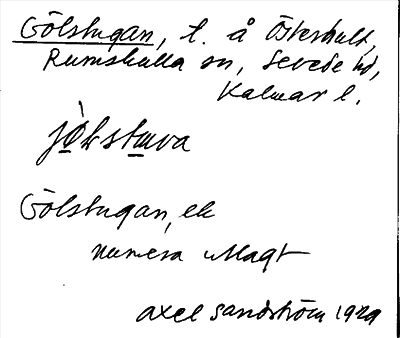 Gölstugan, t. å Österhult,
Rumskulla sn, Sevede hd,
Kalmar l.
jö̀lstuva
Gölstugan, ek
numera utlagt
Axel Sandström 1929